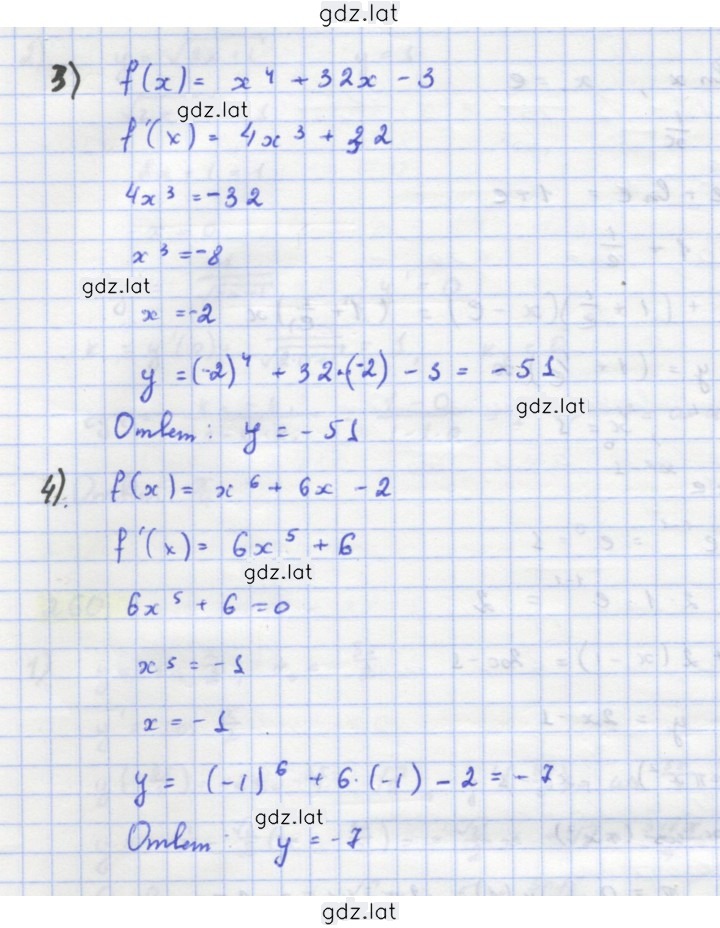 gdz.lat
3) f(x) = x⁴ + 32x - 3
gdz.lat
f'(x) = 4x³ + 32
4x³ = -32
x³ = -8
gdz.lat
x = -2
y = (-2)⁴ + 32·(-2) - 3 = -51
gdz.lat
Ответ: y = -51
4). f(x) = x⁶ + 6x - 2
f'(x) = 6x⁵ + 6
gdz.lat
6x⁵ + 6 = 0
x⁵ = -1
x = -1
y = (-1)⁶ + 6·(-1) - 2 = -7
gdz.lat
Ответ: y = -7
gdz.lat